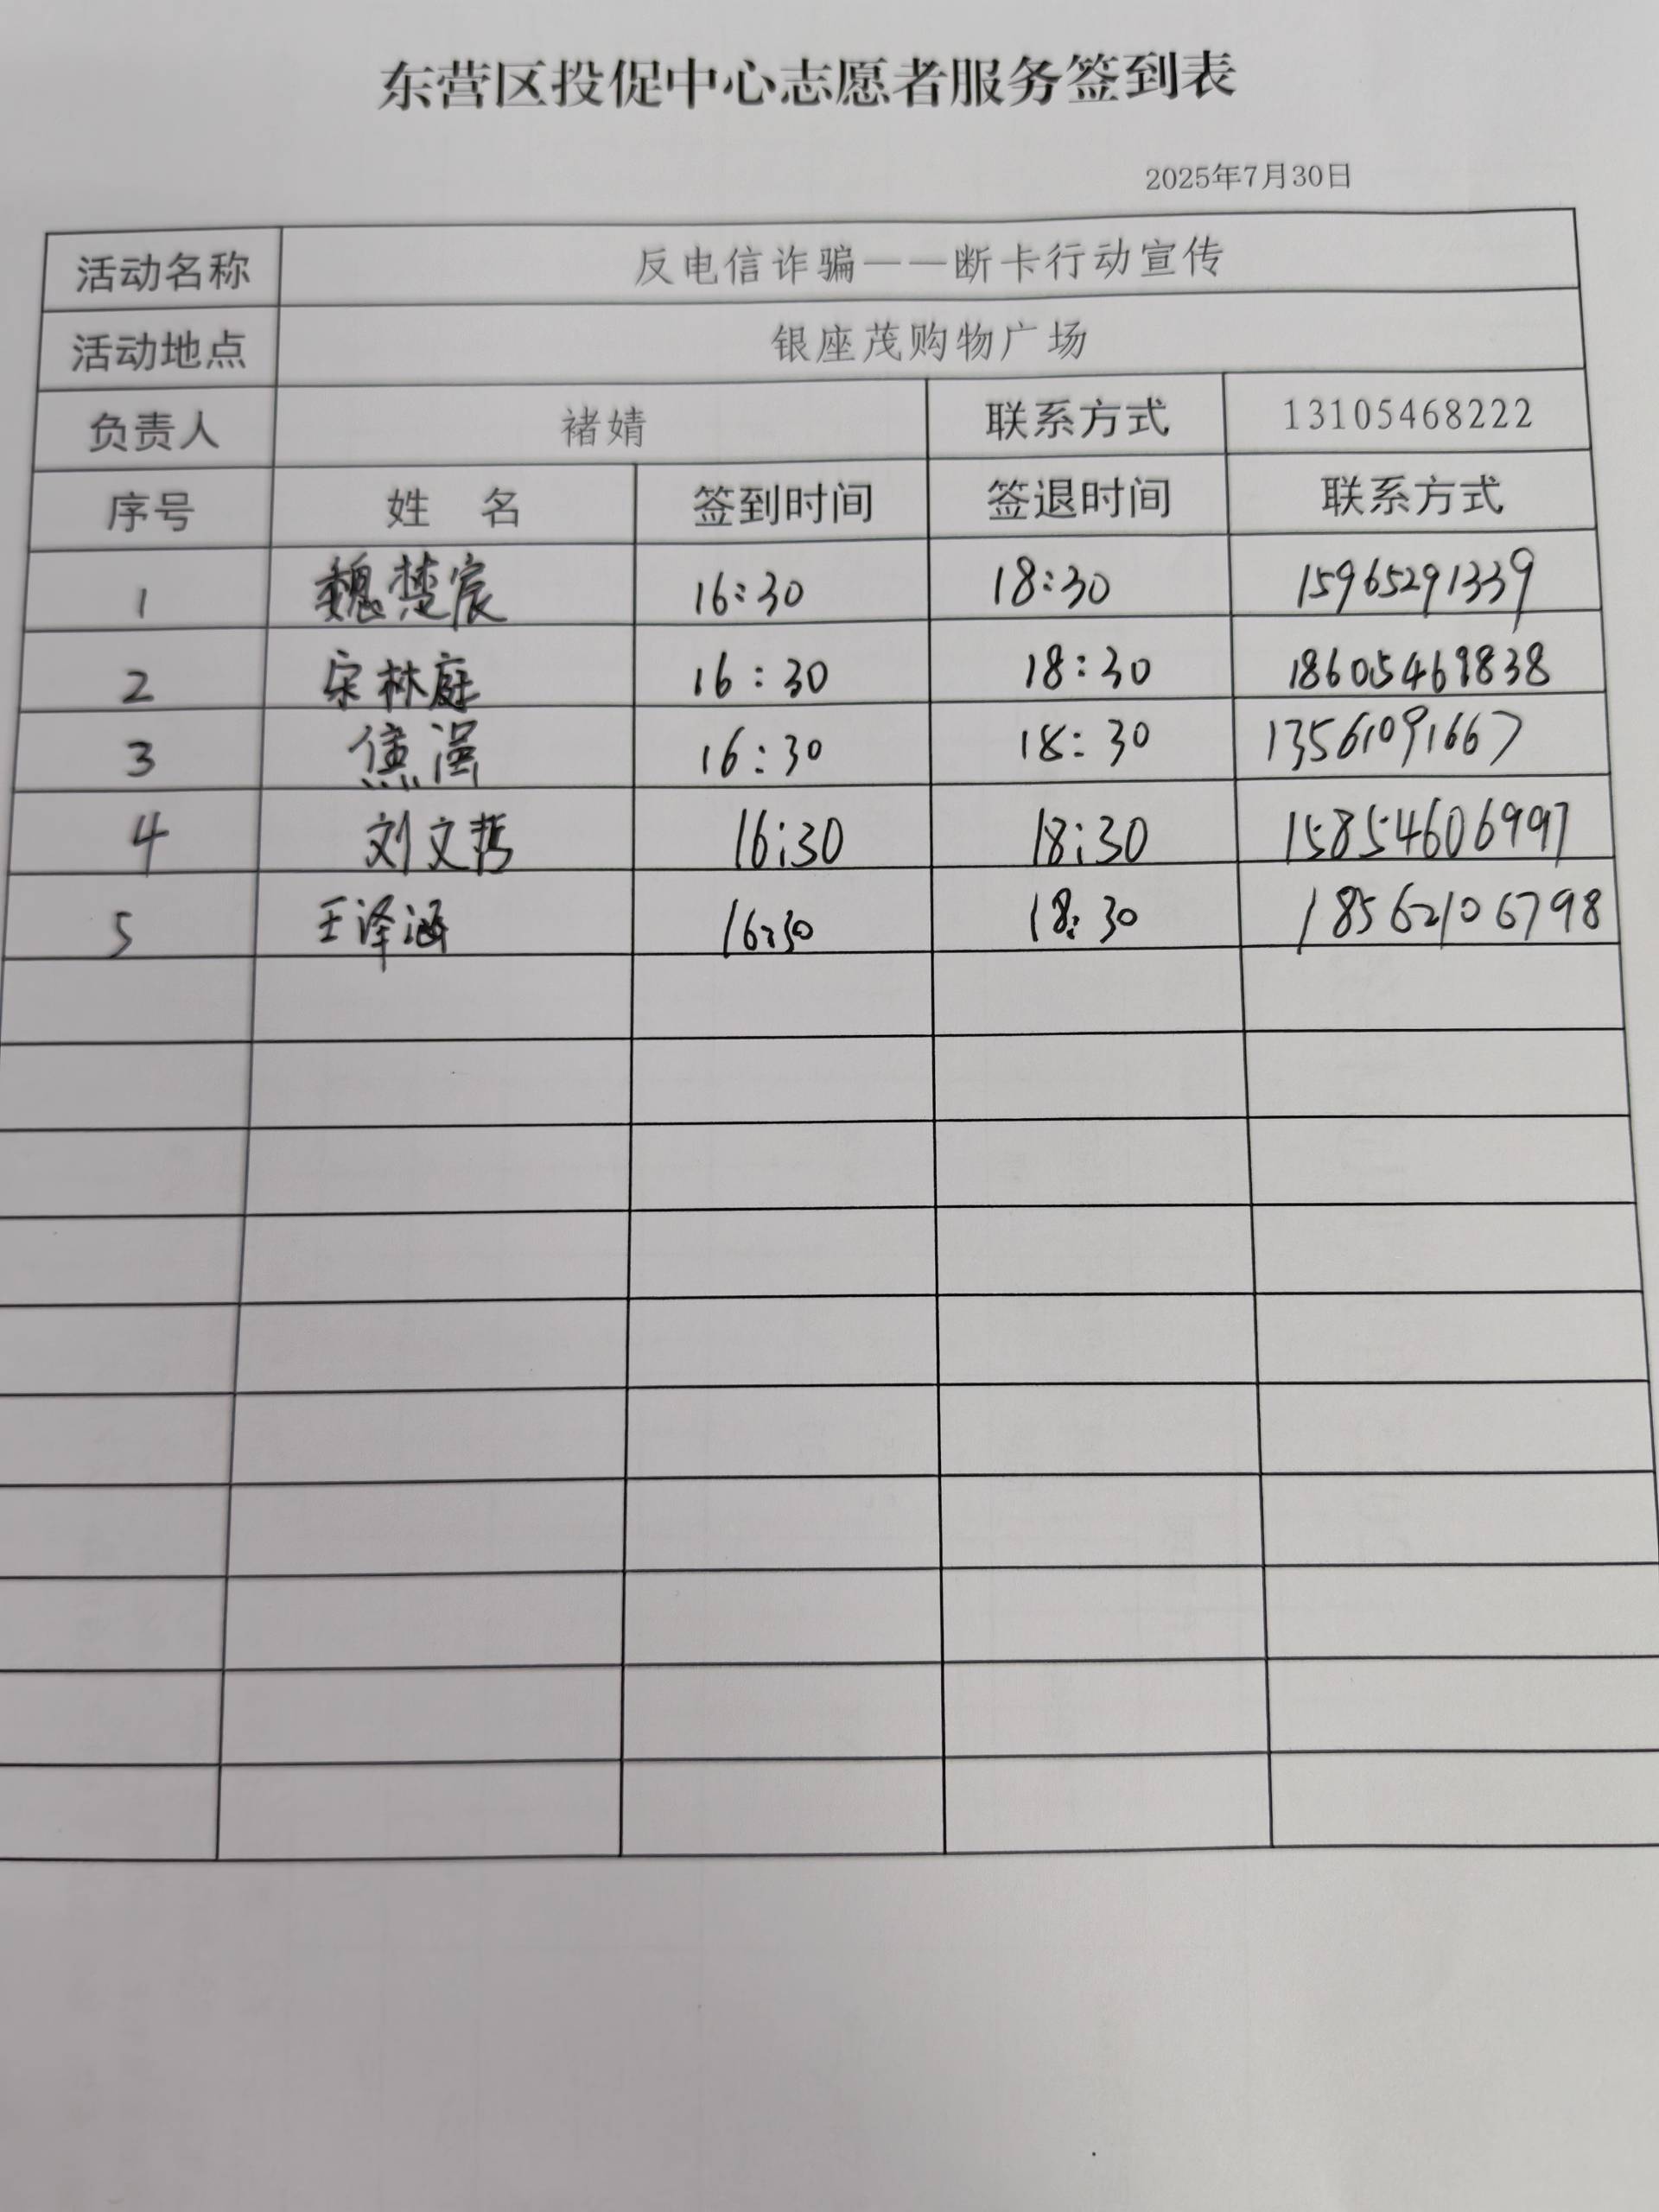 东营区投促中心志愿者服务签到表
2025年7月30日
活动名称 反电信诈骗——断卡行动宣传
活动地点 银座茂购物广场
负责人 褚婧 联系方式 13105468222
序号 姓 名 签到时间 签退时间 联系方式
1 魏楚宸 16:30 18:30 15965291339
2 宋林庭 16:30 18:30 18605469838
3 焦 16:30 18:30 13561091667
4 刘文哲 16:30 18:30 15854606997
5 王泽涵 16:30 18:30 18562106798